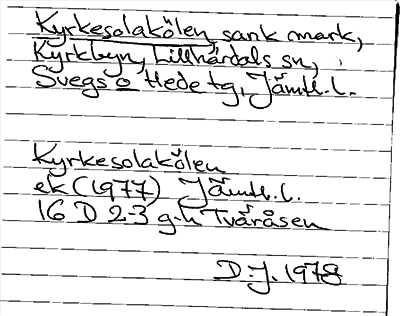 Kyrkesolakölen, sank mark,
Kyrkbyn, Lillhärdals sn,
Svegs o Hede tg, Jämtl. l.
Kyrkesolakölen
ek (1977) Jämtl. l.
16 D 2-3 g-h Tvåråsen
D.J. 1978